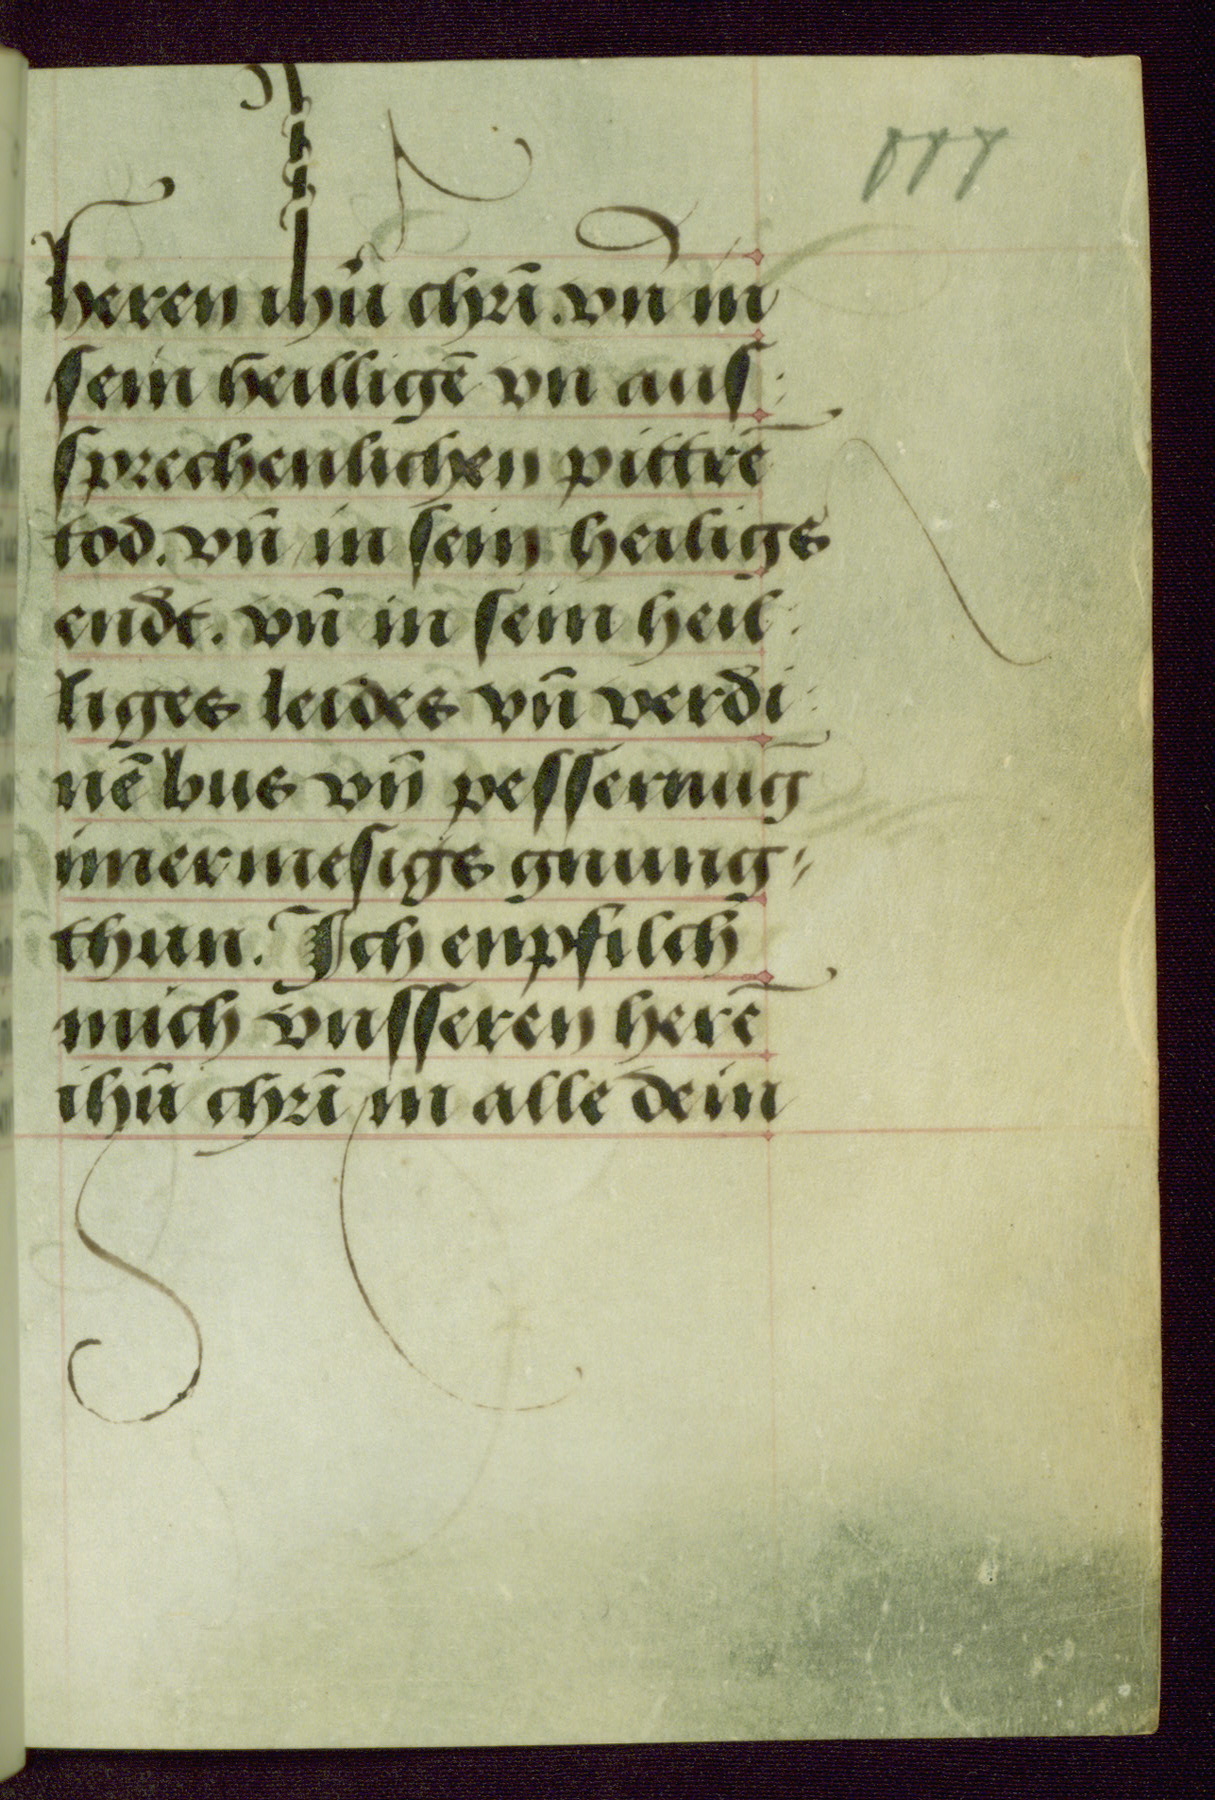 heren ihū chrī. vn̄ in
sein heilligē vn auſ:
ſprechenlichen pittrē
tod. vn̄ in ſein heiligs
endt. vn̄ in ſein heil:
liges leides vn̄ verdi:
nē bus vn̄ peſſerung
ȳmermeſigs gnung
thun. Ich enpfilch
mich vnſſeren herē
ihū chrī in alle dein